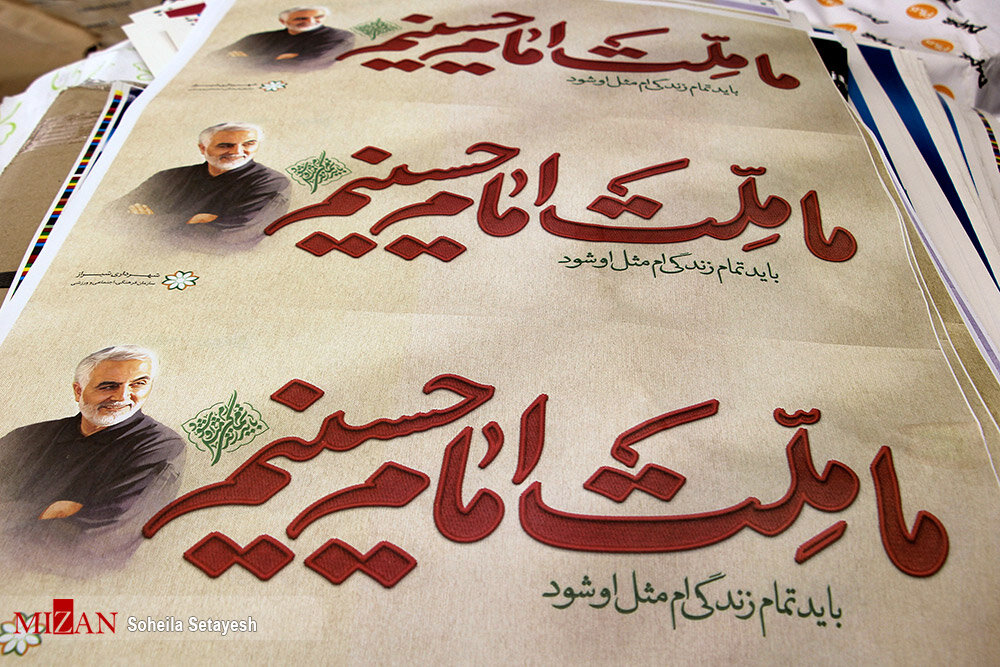 ما ملّت امام حسینیم
باید تمام زندگی ام مثل او شود
ما ملّت امام حسینیم
باید تمام زندگی ام مثل او شود
شهرداری شیراز
سازمان فرهنگی اجتماعی و ورزشی
ما ملّت امام حسینیم
باید تمام زندگی ام مثل او شود
MIZAN Soheila Setayesh